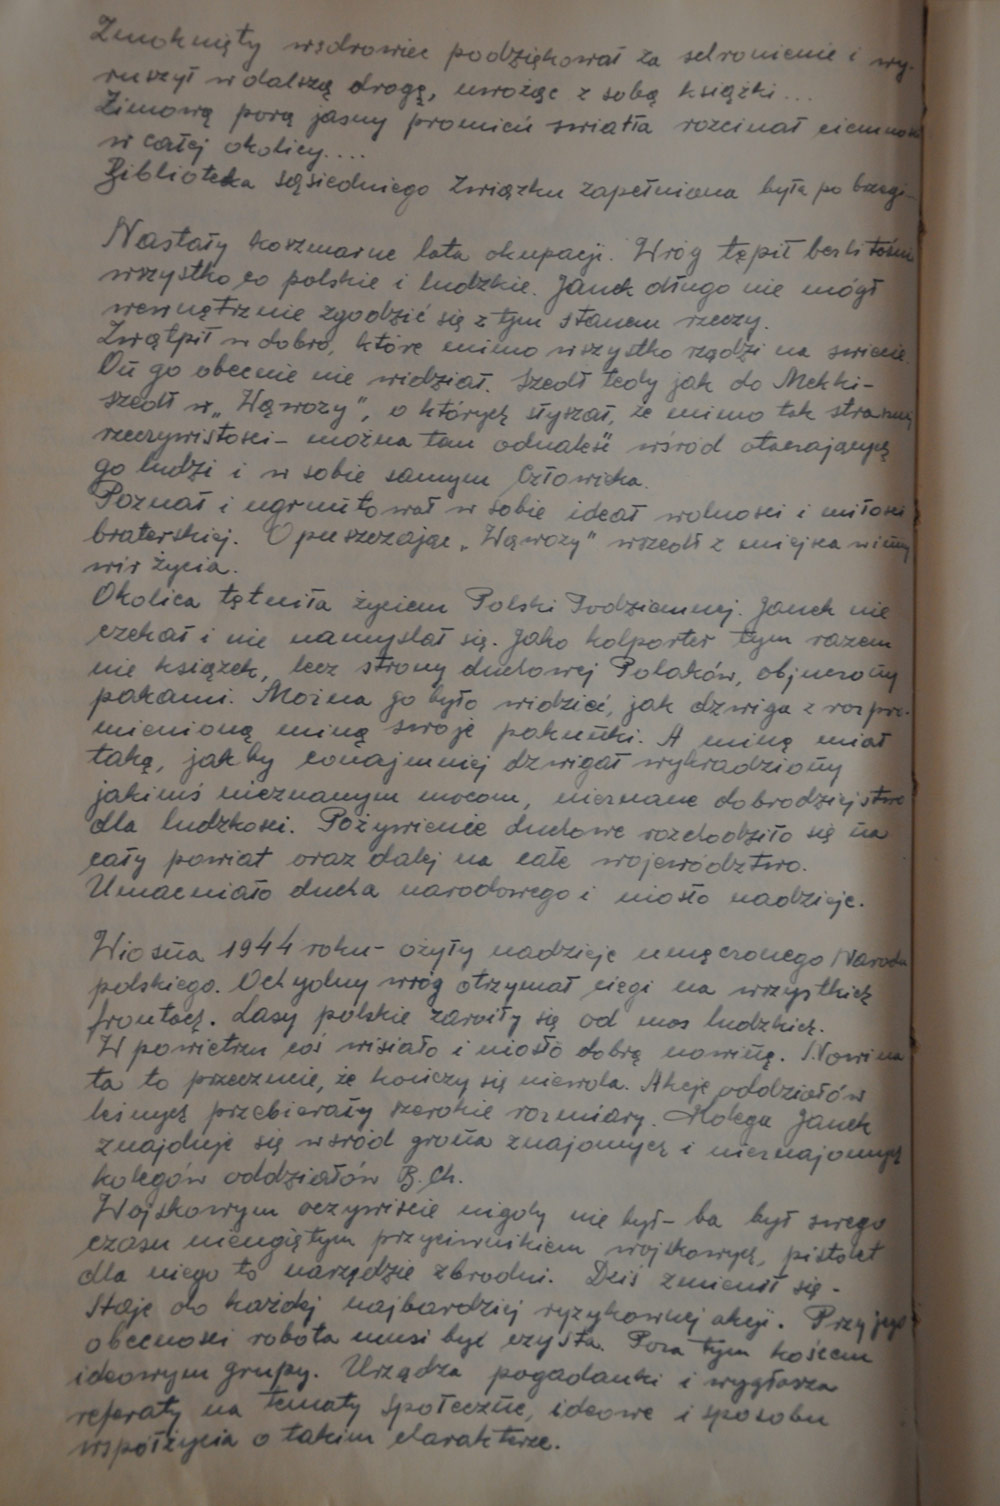 Zmoknięty wsdrowiec podziękował za schronienie i wy-
ruszył w dalszą drogę, uwożąc z sobą książki...
Zimową porą jasny promień swiatła rozcinał ciemności
w całej okolicy....
Biblioteka sąsiedniego Związku zapełniona była po brzegi-
Nastały koszmarne lata okupacji. Wróg tępił bezlitośnie
wszystko co polskie i ludzkie. Janek długo nie mógł
wewnętrznie zgodzić się z tym stanem rzeczy.
Zwątpił w dobro, które mimo wszystko rządzi na swiecie.
On go obecnie nie widział. Szedł tedy jak do Mekki-
szedł w „Wąwozy", o których słyszał, że mimo tak strasznej
rzeczywistosci- można tam odnaleść wśród otaczających
go ludzi i w sobie samym Człowieka.
Poznał i ugruntował w sobie ideał wolnosci i miłosci
braterskiej. Opuszczając „Wąwozy" wszedł z miejsca w inny
wir życia.
Okolica tętniła życiem Polski Podziemnej. Janek nie
czekał i nie namyslał się. Jako kolporter tym razem
nie książek, lecz strony duchowej Polaków, objuczony
pakami. Można go było widzieć, jak dzwiga z rozpro-
mienioną miną swoje pakunki. A minę miał
taką, jakby conajmniej dzwigał wykradziony
jakimś nieznanym mocom, nieznane dobrodziejstwo
dla ludzkosci. Pożywienie duchowe rozchodziło się na
cały powiat oraz dalej na całe województwo.
Umacniało ducha narodowego i niosło nadzieje.
Wiosna 1944 roku- ożyły nadzieje umęczonego Narodu
polskiego. Ochydny wróg otrzymał cięgi na wszystkich
frontach. Lasy polskie zaroiły się od mas ludzkich.
W powietrzu coś wisiało i niosło dobrą nowinę. Nowina
ta to przeczucie, że kończy się niewola. Akcje oddziałów
leśnych przebierały szerokie rozmiary. Kolega Janek
znajduje się wsród grona znajomych i nieznajomych
kolegów oddziałów B.Ch.
Wojskowym oczywiscie nigdy nie był- ba był swego
czasu nieugiętym przeciwnikiem wojskowych, pistolet
dla niego to narządzie zbrodni. Dziś zmienił się-
Staje do każdej najbardziej ryzykownej akcji. Przy jego
obecnosci robota musi być czysta. Poza tym kośćcem
ideowym grupy. Urządza pogadanki i wygłasza
referaty na tematy społeczne, ideowe i sposobu
współżycia o takim charakterze.